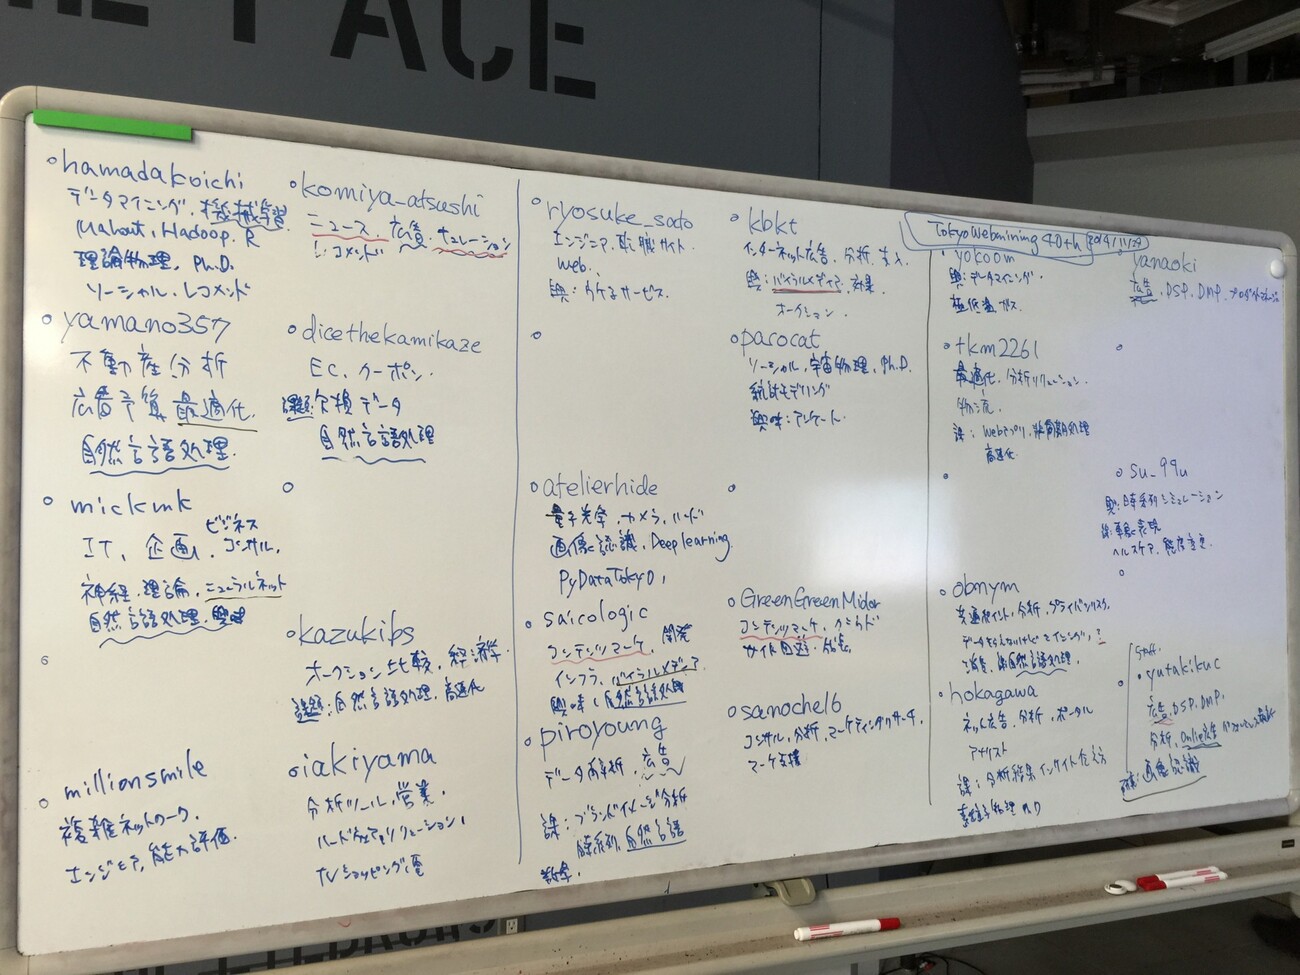 PACE
TokyoWebmining 40th
○hamadakoichi
データマイニング、機械学習
Mahout, Hadoop, R
理論物理, Ph.D.
ソーシャル、レコメンド
○yamano357
不動産分析
広告予算最適化、
自然言語処理
○mickmk
IT、企画、ビジネス
コンサル、
神経、理論、ニューラルネット
自然言語処理、興味
○millionsmile
複雑ネットワーク、
エンジニア、能力評価
○komiya_atsushi
ニュース、広告、キュレーション
レコメンド
○dicethekamikaze
EC、クーポン、
課題:欠損データ
自然言語処理
○kazukibs
オークション比較、経済学、
課題:自然言語処理、高速化
○iakiyama
分析ツール、営業、
ハードウェアソリューション、
TVショッピング
○ryosuke_sato
エンジニア、転職サイト
Web、
興:ウケるサービス、
○atelierhide
量子光学、カメラ、ハード
画像認識、Deep learning
PyDataTokyo,
○saicologic
コンテンツマーケ、開発
インフラ、バイラルメディア
興味:自然言語処理
○piroyoung
データ解析、広告
課:ブランドイメージ分析
時系列、自然言語
数学、
○kbkt
インターネット広告、分析
興:バイラルメディア、効果、
オークション、
○parocat
ソーシャル、宇宙物理、Ph.D.
統計モデリング
興味:アンケート、
○GreenGreenMidor
コンテンツマーケ、クラウド
サイト回遊
○sanoche16
コンサル、分析、マーケティングリサーチ、
マーケ支援
○yokoom
興:データマイニング、
極低温ガス、
○tkm2261
最適化、分析ソリューション、
物流、
課:Webアプリ、非同期処理
高速化
○obnym
共通ポイント、分析、プライバシリスク、
自然言語処理、
○hokagawa
ネット広告、分析、ポータル
アナリスト
課:分析結果インサイト伝え方
素粒子物理
○yanaoki
広告、DSP、DMP、プロダクトマネージャ
○su_99u
興:時系列シミュレーション
ヘルスケア、
Staff.
・yutakikuc
広告、DSP、DMP、
分析、
画像認識